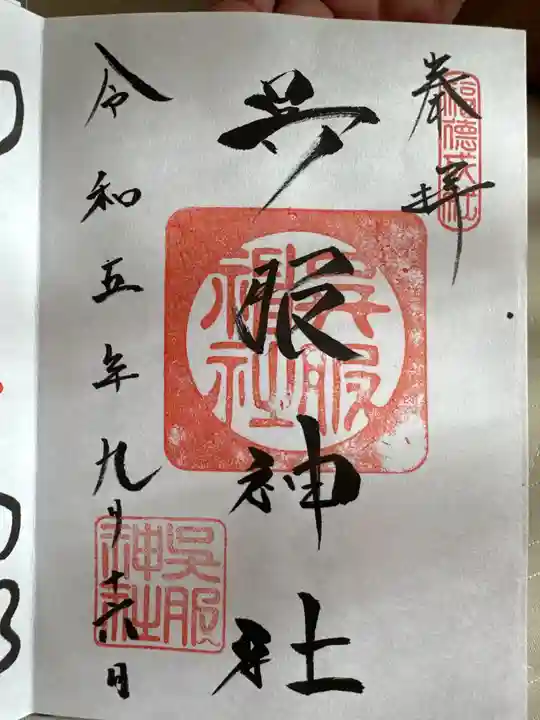 奉拝
呉服神社
令和五年九月十六日
呉服
神社
呉服
神社